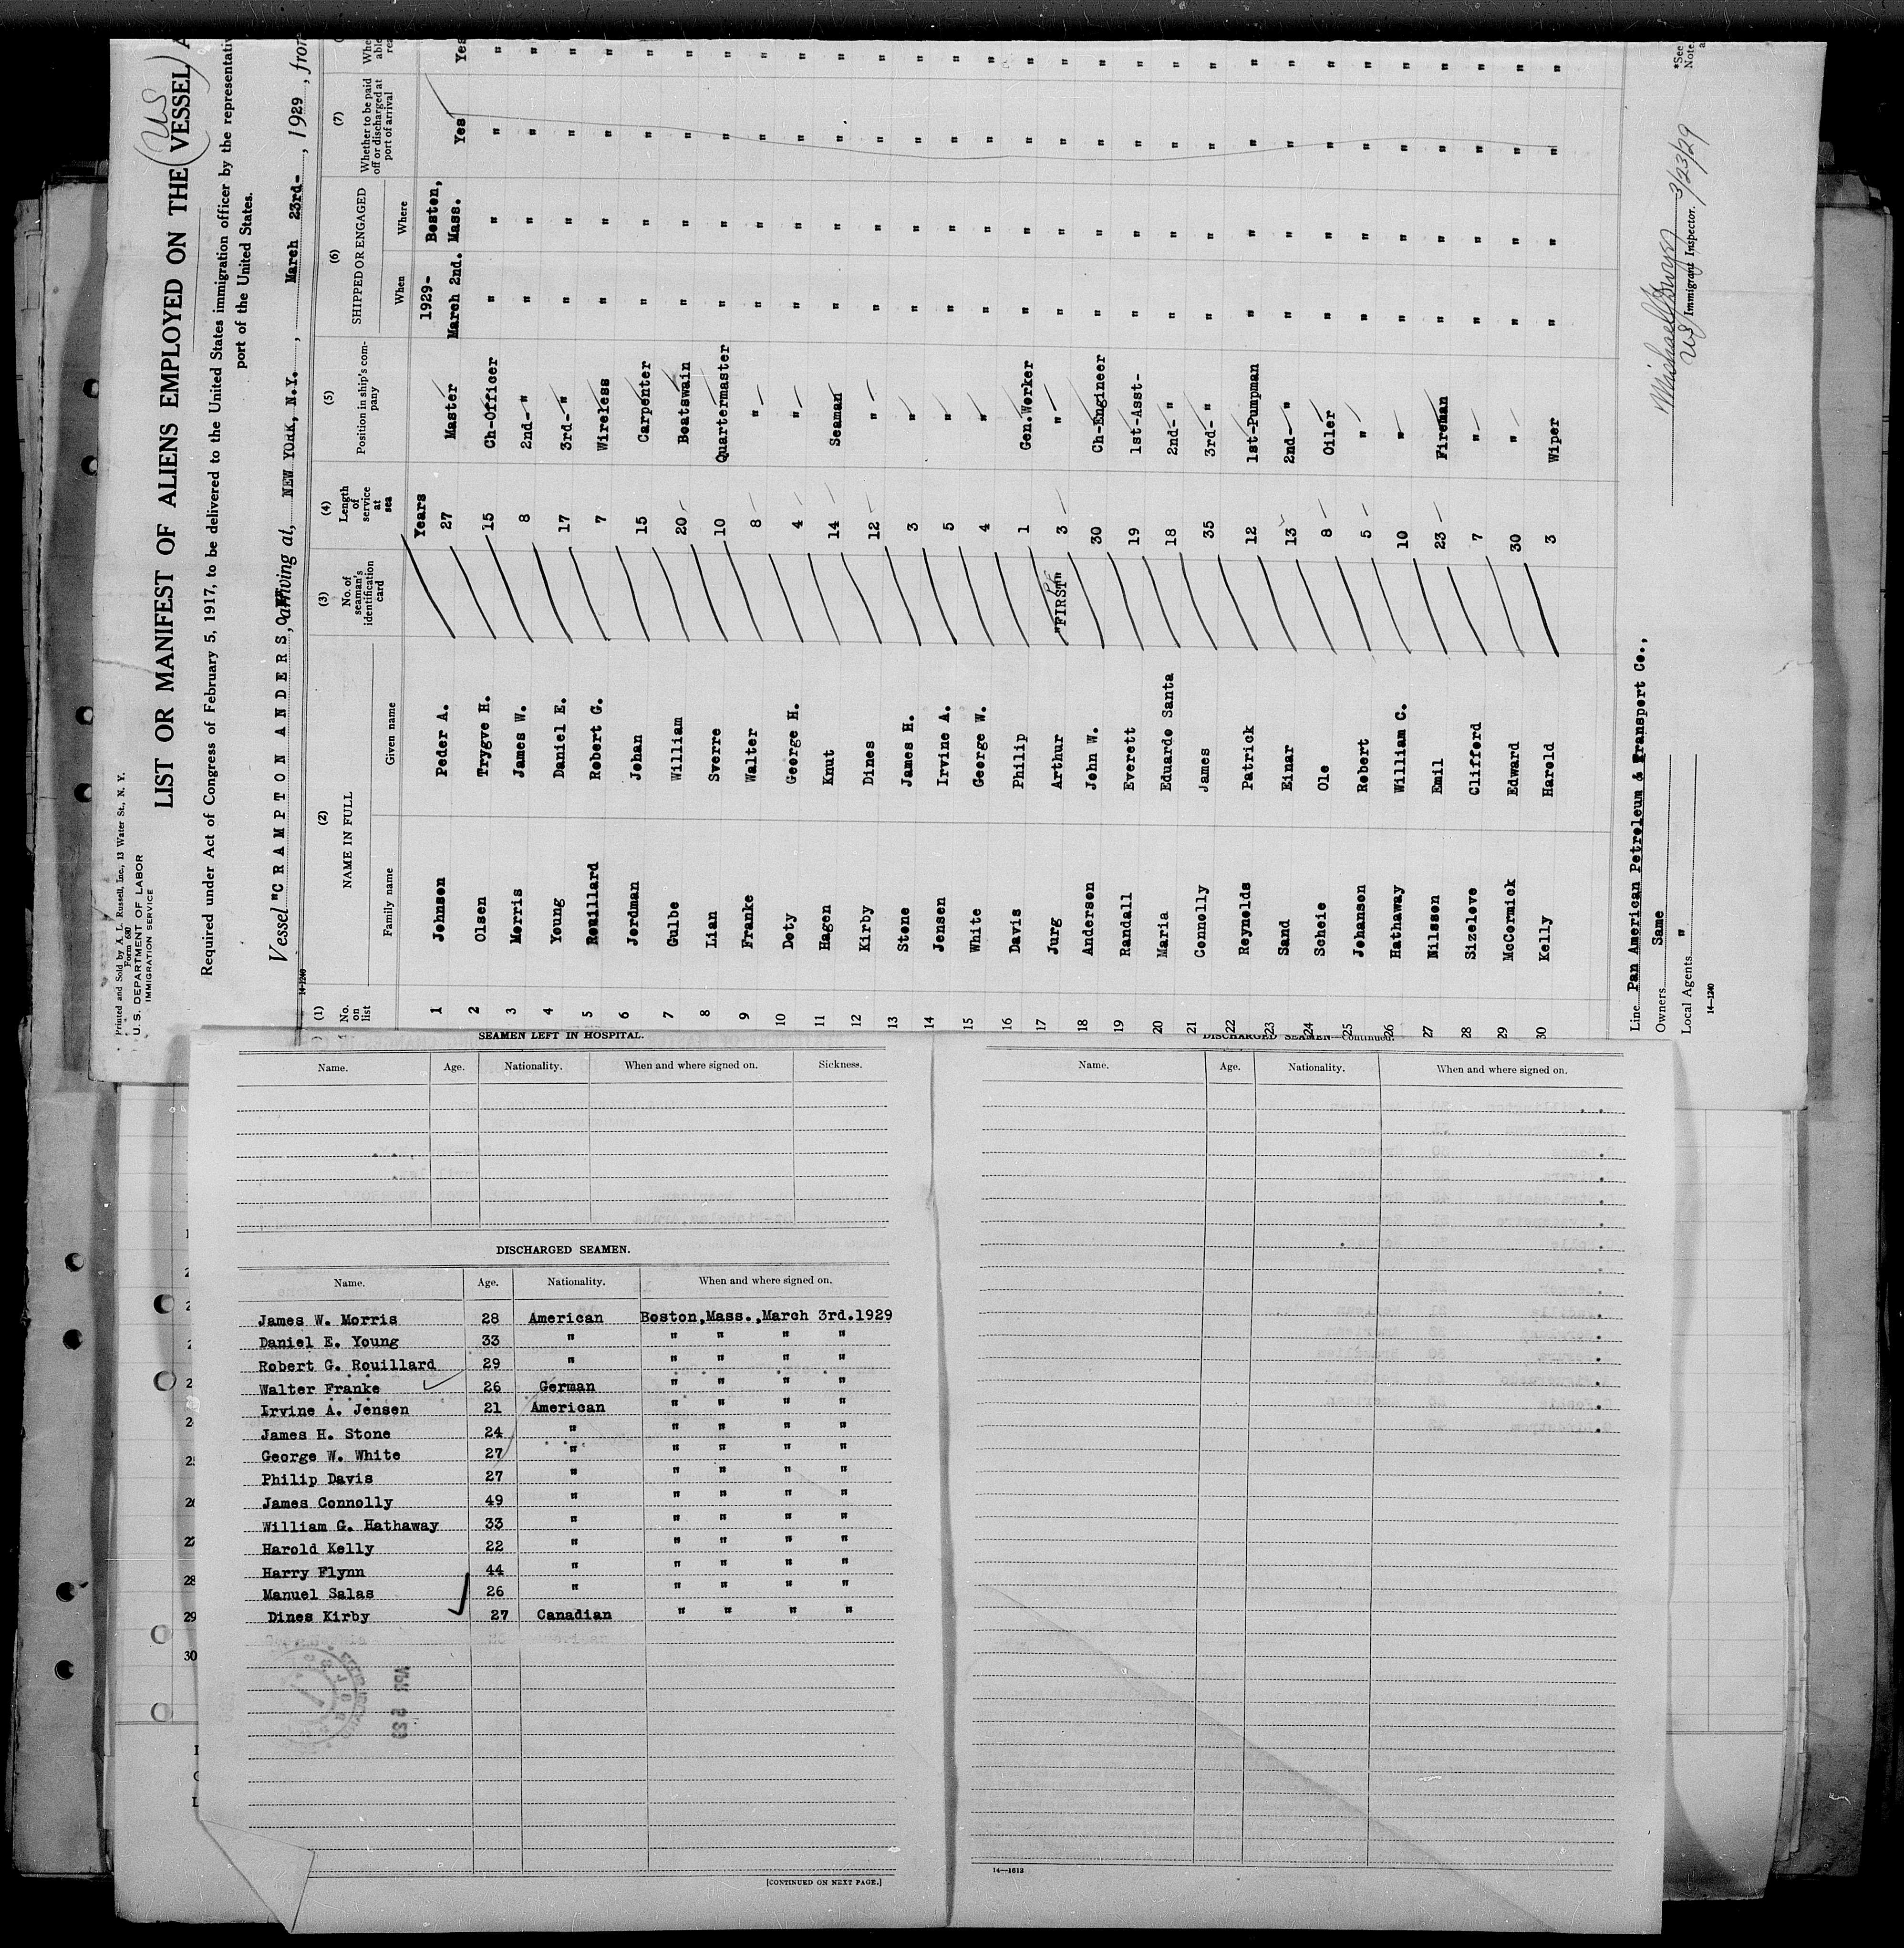 Printed and Sold by A. L. Russell, Inc., 13 Water St., N. Y.
Form 680
U. S. DEPARTMENT OF LABOR
IMMIGRATION SERVICE
LIST OR MANIFEST OF ALIENS EMPLOYED ON THE VESSEL
US
Required under Act of Congress of February 5, 1917, to be delivered to the United States immigration officer by the
port of the United States.
Vessel "CRAMPTON ANDERSON", arriving at, NEW YORK, N.Y., March 23rd-, 1929, from
14-1240
(1) (2) (3) (4) (5) (6) (7)
No. on list NAME IN FULL No. of seaman's identification card Length of service at sea Position in ship's company SHIPPED OR ENGAGED Whether to be paid off or discharged at port of arrival
Family name Given name When Where
Years 1929- Boston,
1 Johnson Peder A. 27 Master March 2nd. Mass. Yes Yes
2 Olsen Trygve H. 15 Ch-Officer " " " "
3 Morris James W. 8 2nd- " " " " "
4 Young Daniel E. 17 3rd- " " " " "
5 Rouillard Robert G. 7 Wireless " " " "
6 Jordman Johan 15 Carpenter " " " "
7 Gulbe William 20 Boatswain " " " "
8 Lian Sverre 10 Quartermaster " " " "
9 Franke Walter 8 " " " " "
10 Doty George H. 4 " " " " "
11 Hagen Knut 14 Seaman " " " "
12 Kirby Dines 12 " " " " "
13 Stone James H. 3 " " " " "
14 Jensen Irvine A. 5 " " " " "
15 White George W. 4 " " " " "
16 Davis Philip 1 Gen.Worker " " " "
17 Jurg Arthur "FIRST" 3 " " " " "
18 Anderson John W. 30 Ch-Engineer " " " "
19 Randall Everett 19 1st-Asst- " " " "
20 Maria Eduardo Santa 18 2nd- " " " " "
21 Connolly James 35 3rd- " " " " "
22 Reynolds Patrick 12 1st-Pumpman " " " "
23 Sand Einar 13 2nd- " " " " "
24 Scheie Ole 8 Oiler " " " "
25 Johansen Robert 5 " " " " "
26 Hathaway William C. 10 " " " " "
27 Nilsson Emil 23 Fireman " " " "
28 Sizelove Clifford 7 " " " " "
29 McCormick Edward 30 " " " " "
30 Kelly Harold 3 Wiper " " " "
Line Pan American Petroleum & Transport Co.,
Owners Same
Local Agents "
14-1240
3/23/29
US Immigrant Inspector.
*See
Note.
SEAMEN LEFT IN HOSPITAL.
Name. Age. Nationality. When and where signed on. Sickness.
DISCHARGED SEAMEN.
Name. Age. Nationality. When and where signed on.
James W. Morris 28 American Boston,Mass.,March 3rd.1929
Daniel E. Young 33 " " " " "
Robert G. Rouillard 29 " " " " "
Walter Franke 26 German " " " "
Irvine A. Jensen 21 American " " " "
James H. Stone 24 " " " " "
George W. White 27 " " " " "
Philip Davis 27 " " " " "
James Connolly 49 " " " " "
William G. Hathaway 33 " " " " "
Harold Kelly 22 " " " " "
Harry Flynn 44 " " " " "
Manuel Salas 26 " " " " "
Dines Kirby 27 Canadian " " " "
[CONTINUED ON NEXT PAGE.]
DISCHARGED SEAMEN—Continued.
Name. Age. Nationality. When and where signed on.
14—1613